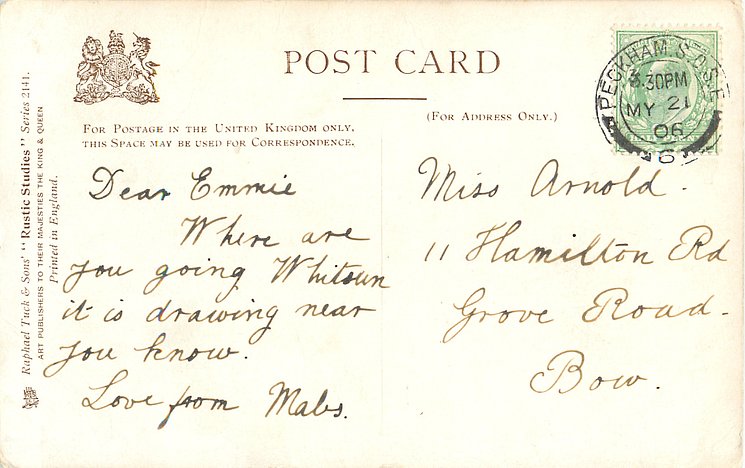 POST CARD
FOR POSTAGE IN THE UNITED KINGDOM ONLY,
THIS SPACE MAY BE USED FOR CORRESPONDENCE.
(FOR ADDRESS ONLY.)
PECKHAM S.O.S.E
3.30PM
MY 21
06
6
Dear Emmie
Where are
you going Whitsun
it is drawing near
you know.
Love from Mabs.
Miss Arnold.
11 Hamilton Rd
Grove Road.
Bow.
Raphael Tuck & Sons' "Rustic Studies" Series 2141.
ART PUBLISHERS TO THEIR MAJESTIES THE KING & QUEEN
Printed in England.